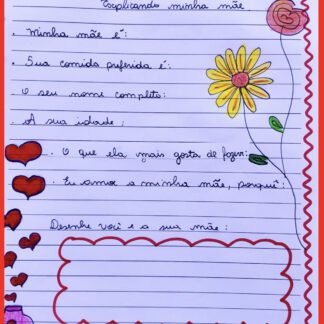 Explicando minha mãe
. Minha mãe é:
. Sua comida preferida é:
. O seu nome completo:
. A sua idade:
. O que ela mais gosta de fazer:
. Eu amor a minha mãe, porquê:
Desenhe você e a sua mãe: